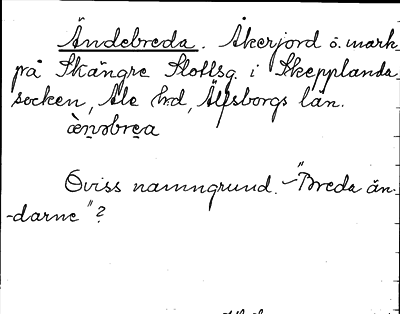 Ändebreda. Åkerjord ö. mark
på Skångre Slottsg. i Skepplanda
socken, Ale hrd, Älfsborgs län.
ä̀n̥əbrea
Oviss namngrund. – "Breda än-
-darne"?